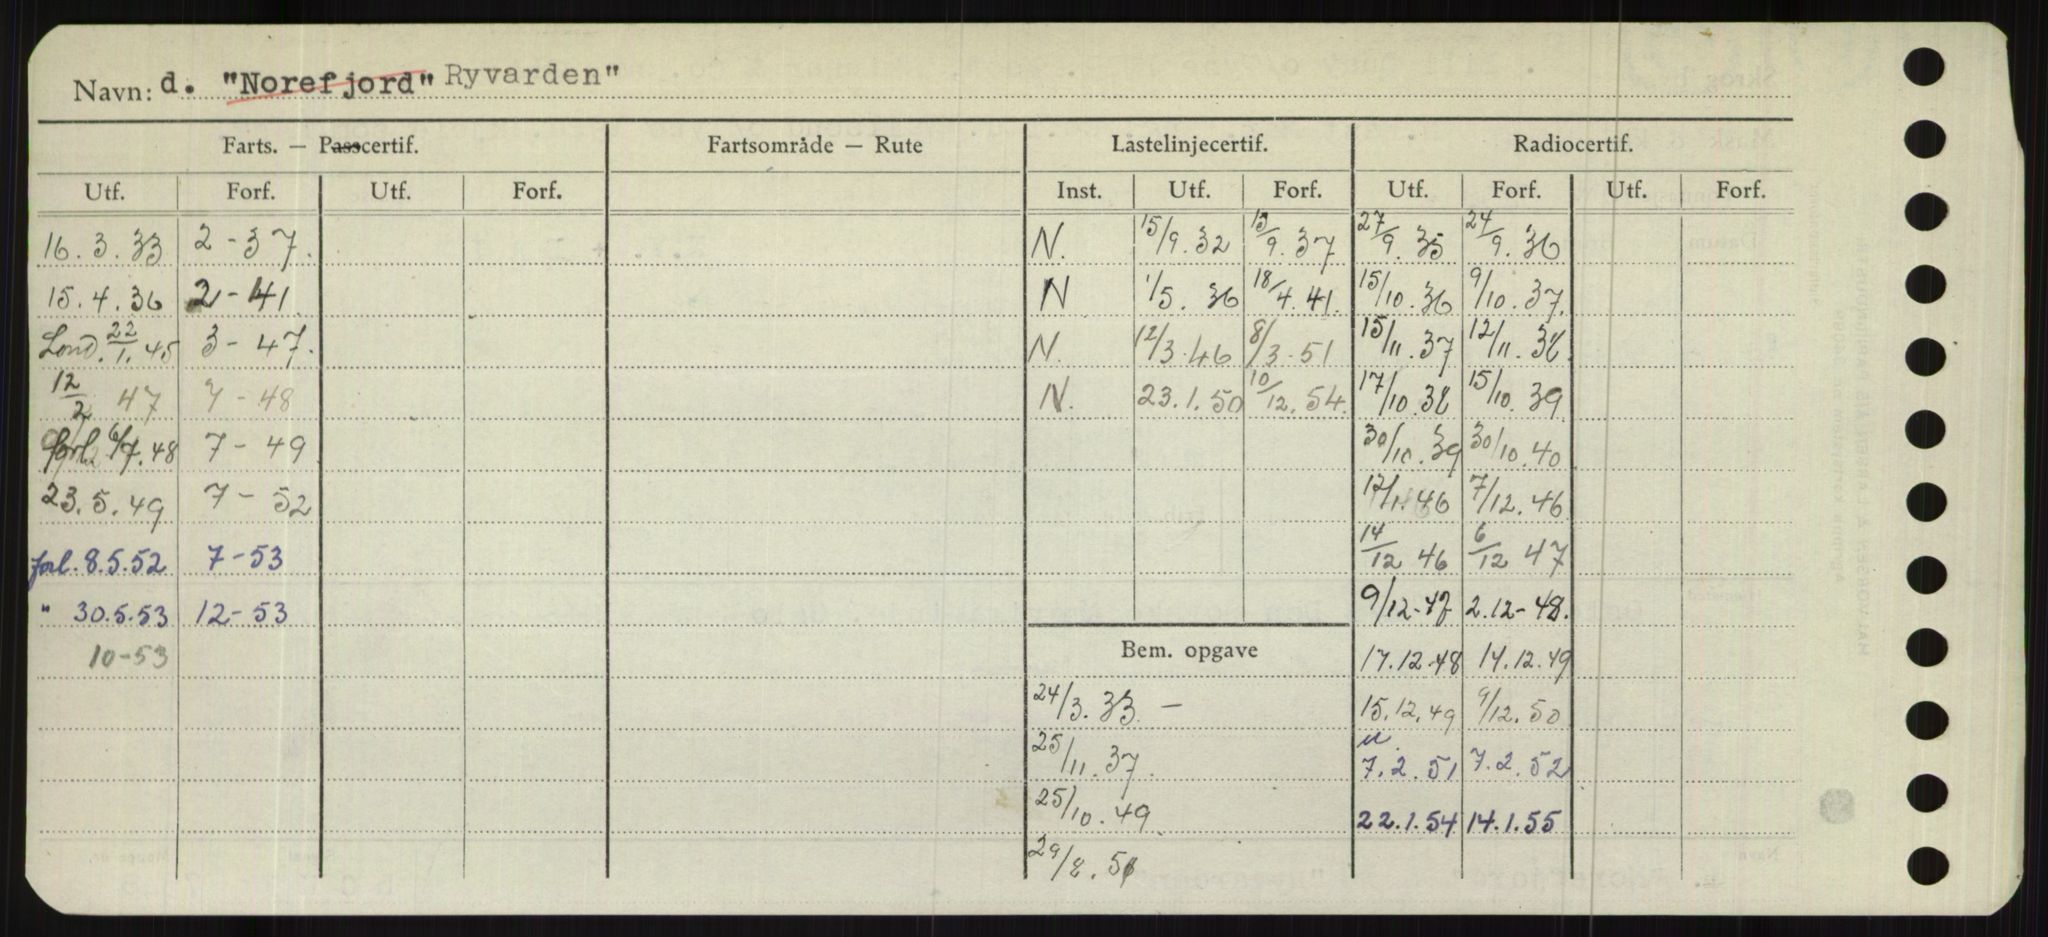 Navn: d. "Norefjord" Ryvarden"
Farts. — Passcertif. Fartsområde — Rute Lastelinjecertif. Radiocertif.
Utf. Forf. Utf. Forf. Inst. Utf. Forf. Utf. Forf. Utf. Forf.
16.3.33 2-37. N. 15/9.32 13/9.37 27/9.35 24/9.36
15.4.36 2-41 N 1/5.36 18/4.41. 15/10.36 9/10.37.
Lond. 22/1.45 3-47. N. 12/3.46 8/3-51 15/11.37 12/11.38.
12/2 47 7-48 N. 23.1.50 10/12.54. 17/10.38 15/10.39
forl. 6/7.48 7-49 30/10.39 30/10.40
23.5.49 7-52 12/11.46 7/12.46
forl. 8.5.52 7-53 14/12 46 6/12 47
" 30.5.53 12-53 9/12-47 2.12-48.
10-53 Bem. opgave 17.12.48 14.12.49
24/3.33 - 15.12.49 9/12.50
25/11.37. 7.2.51 7.2.52
25/10.49 22.1.54 14.1.55
29/8.51